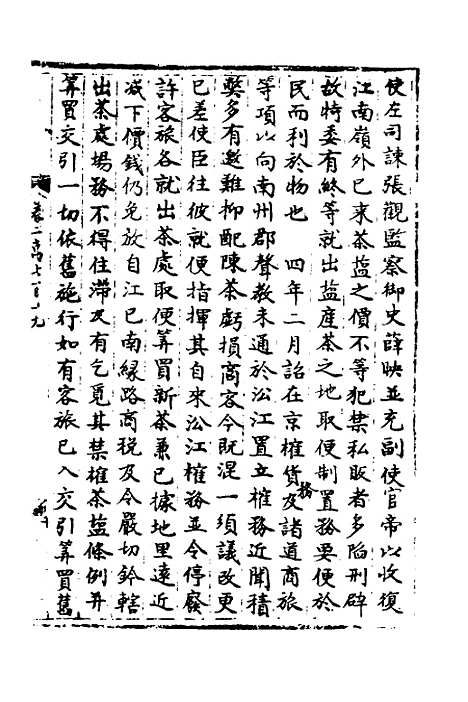 使左司諫張觀監察御史薛映並充副使官帝以收復
江南嶺外已來茶鹽之價不等犯禁私販者多陷刑辟
故特委有終等就出鹽產茶之地取便制置務要便於
民而利於物也　四年二月詔在京榷貨務及諸道商旅
等項以向南州郡聲教未通於㳂江置立榷務近聞積
弊多有邀難抑配陳茶虧損商客今既混一須議改更
已差使臣往彼就便指揮其自來㳂江榷務並令停廢
許客旅各就出茶處取便筭買新茶兼已據地里遠近
减下價錢仍免放自江已南緣路商稅及令嚴切鈐轄
出茶處場務不得住滯及有乞覓其禁榷茶鹽條例并
筭買交引一切依舊施行如有客旅已入交引筭買舊
卷二萬七百九